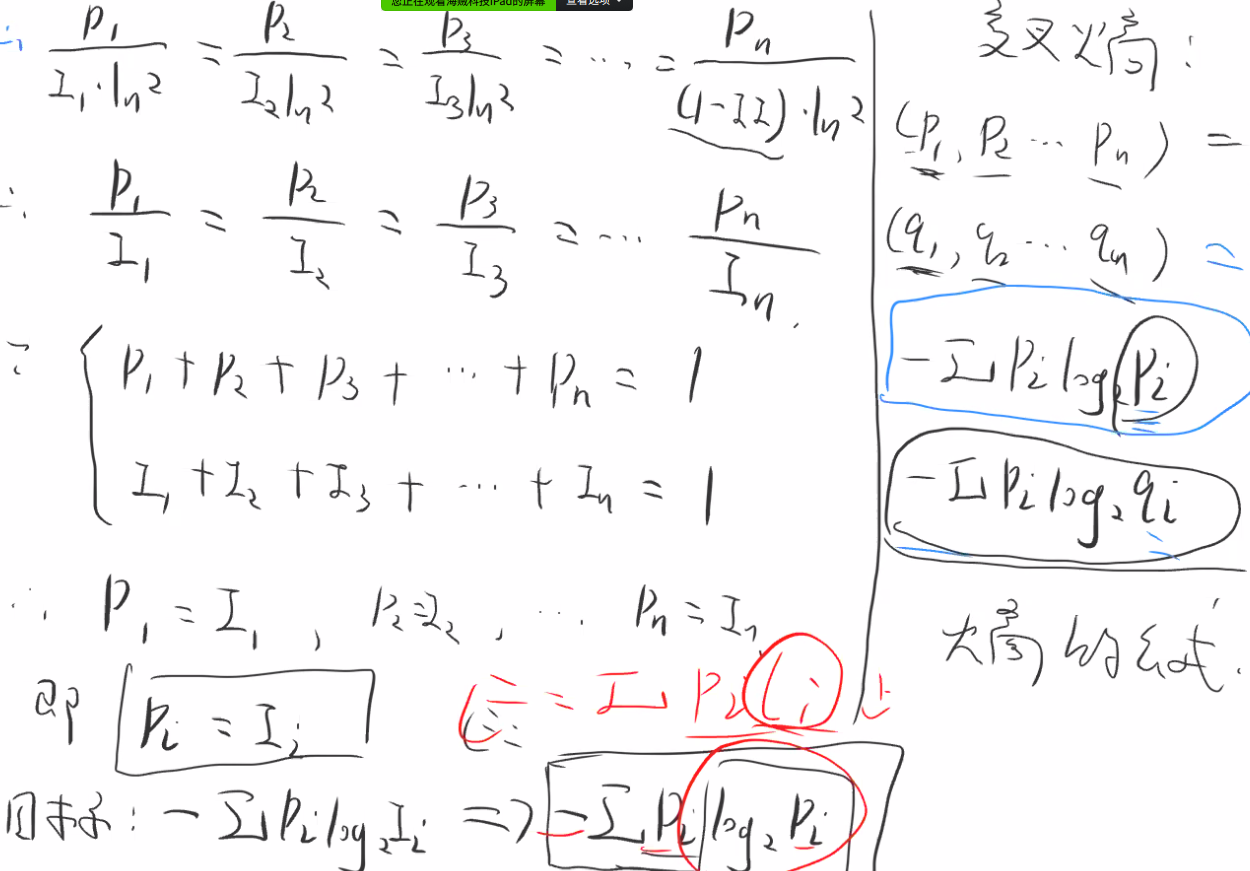 您正在观看海贼科技iPad的屏幕 查看选项
∴ p₁/(I₁·ln2) = p₂/(I₂ln2) = p₃/(I₃ln2) = … = pₙ/((1-II)·ln2)
∴ p₁/I₁ = p₂/I₂ = p₃/I₃ = … pₙ/Iₙ.
{ p₁ + p₂ + p₃ + … + pₙ = 1
I₁ + I₂ + I₃ + … + Iₙ = 1
∴ p₁ = I₁, p₂ = I₂, … pₙ = Iₙ
即 pᵢ = Iᵢ
= Σ pᵢ lᵢ
目标: -Σ pᵢ log₂Iᵢ => -Σ pᵢ log₂ pᵢ
交叉熵:
(p₁, p₂ … pₙ) =
(q₁, q₂ … qₙ) =
-Σ pᵢ log₂ pᵢ
-Σ pᵢ log₂ qᵢ
熵的公式.